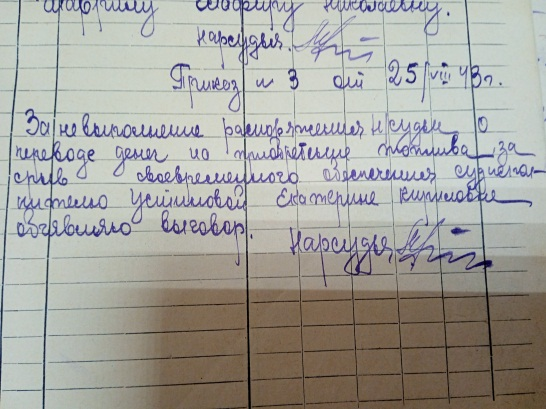 Серафиму Николаевну.
Нарсудья.
Приказ н 3 от 25/VIII 43 г.
За невыполнение распоряжения н/судьи о
переводе денег на приобретение топлива, за
срыв своевременного обеспечения судиспол-
нителю Устиновой Екатерине Кирилловне
объявляю выговор.
Нарсудья